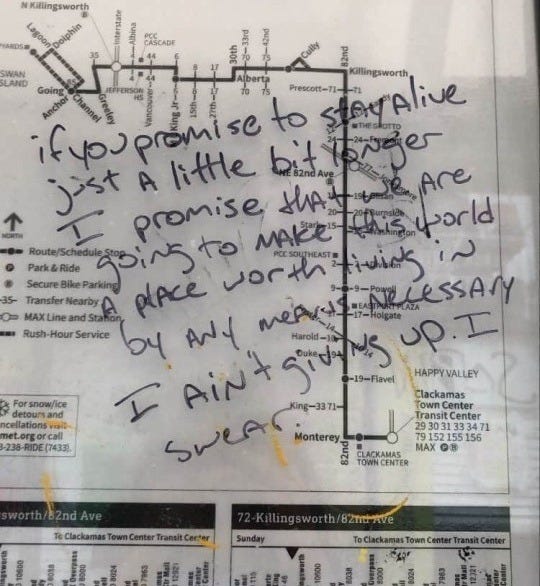 N Killingsworth
Lagoon
Dolphin
SWAN
ISLAND
Going
Anchor
Channel
Greeley
35
Interstate
JEFFERSON
HS
Albina
4
44
PCC
CASCADE
Vancouver
4
44
6
King Jr
6
8
15th
8
17
27th
17
Alberta
30th
33rd
70
70
42nd
75
75
Cully
82nd
Killingsworth
Prescott–71
71
THE GROTTO
24
24
NE 82nd Ave
77
19
20
20
Burnside
Stark
15
Washington
PCC SOUTHEAST
2
9
9
Powell
EASTPORT PLAZA
17
Holgate
Harold
14
Duke
19
19
Flavel
King–33 71
Monterey
82nd
CLACKAMAS
TOWN CENTER
HAPPY VALLEY
Clackamas
Town Center
Transit Center
29 30 31 33 34 71
79 152 155 156
MAX
if you promise to stay Alive
just A little bit longer
I promise that we Are
going to MAKe this world
A plAce worth living in
by ANy meANs Necessary
I AiN't giving up. I
sweAr.
NORTH
Route/Schedule Stop
Park & Ride
Secure Bike Parking
35 Transfer Nearby
MAX Line and Station
Rush-Hour Service
For snow/ice
detours and
met.org or call
3-238-RIDE (7433).
sworth/82nd Ave
To Clackamas Town Center Transit Center
72-Killingsworth/82nd Ave
Sunday
To Clackamas Town Center Transit Center